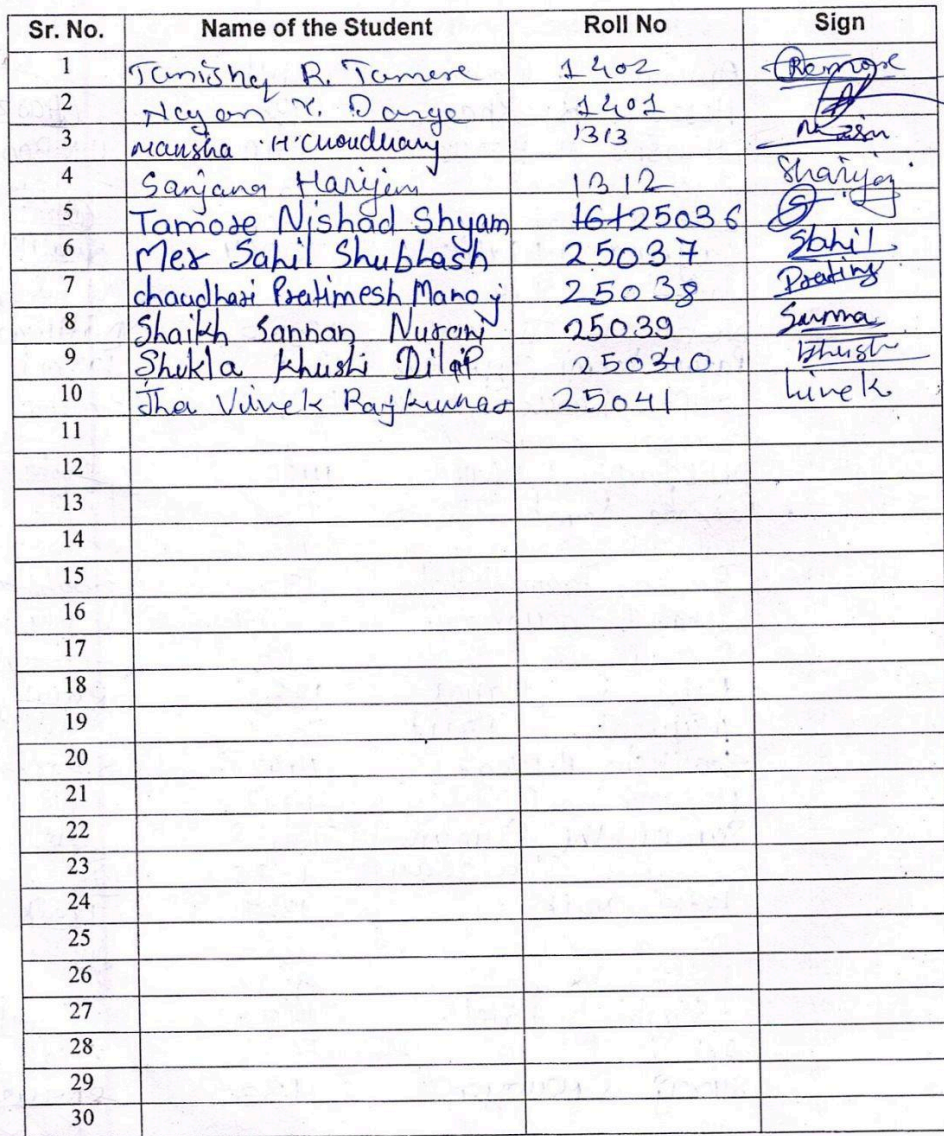 Sr. No. Name of the Student Roll No Sign
1 Tanishq R. Tamore 1402 Ramore
2 Nayan Y. Dange 1401
3 Mansha H Choudhary 1313
4 Sanjana Harijan 1312 Sharijan
5 Tamore Nishad Shyam 25036
6 Mer Sahil Shubhash 25037 Sahil
7 chaudhari Pratimesh Manoj 25038
8 Shaikh Sannan Nurani 25039
9 Shukla Khushi Dilip 25040 Khushi
10 Jha Vivek Rajkumar 25041 Vivek
11
12
13
14
15
16
17
18
19
20
21
22
23
24
25
26
27
28
29
30